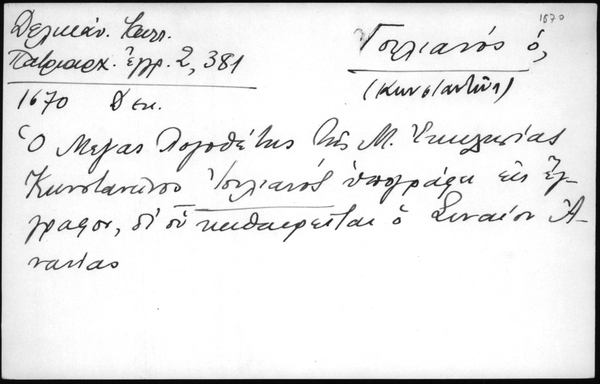 1670
Δελικάν. Καλλ.
Πατριαρχ. ἔγγρ. 2, 381
Ἰουλιανός ὁ,
(Κωνσταντῖνος)
1670 Δεκ.
Ὁ Μέγας Λογοθέτης τῆς Μ. Ἐκκλησίας
Κωνσταντῖνος Ἰουλιανός ὑπογράφει εἰς ἔγ-
γραφον, δι' οὗ καθαιρεῖται ὁ Σιναίου Ἀ-
νανίας